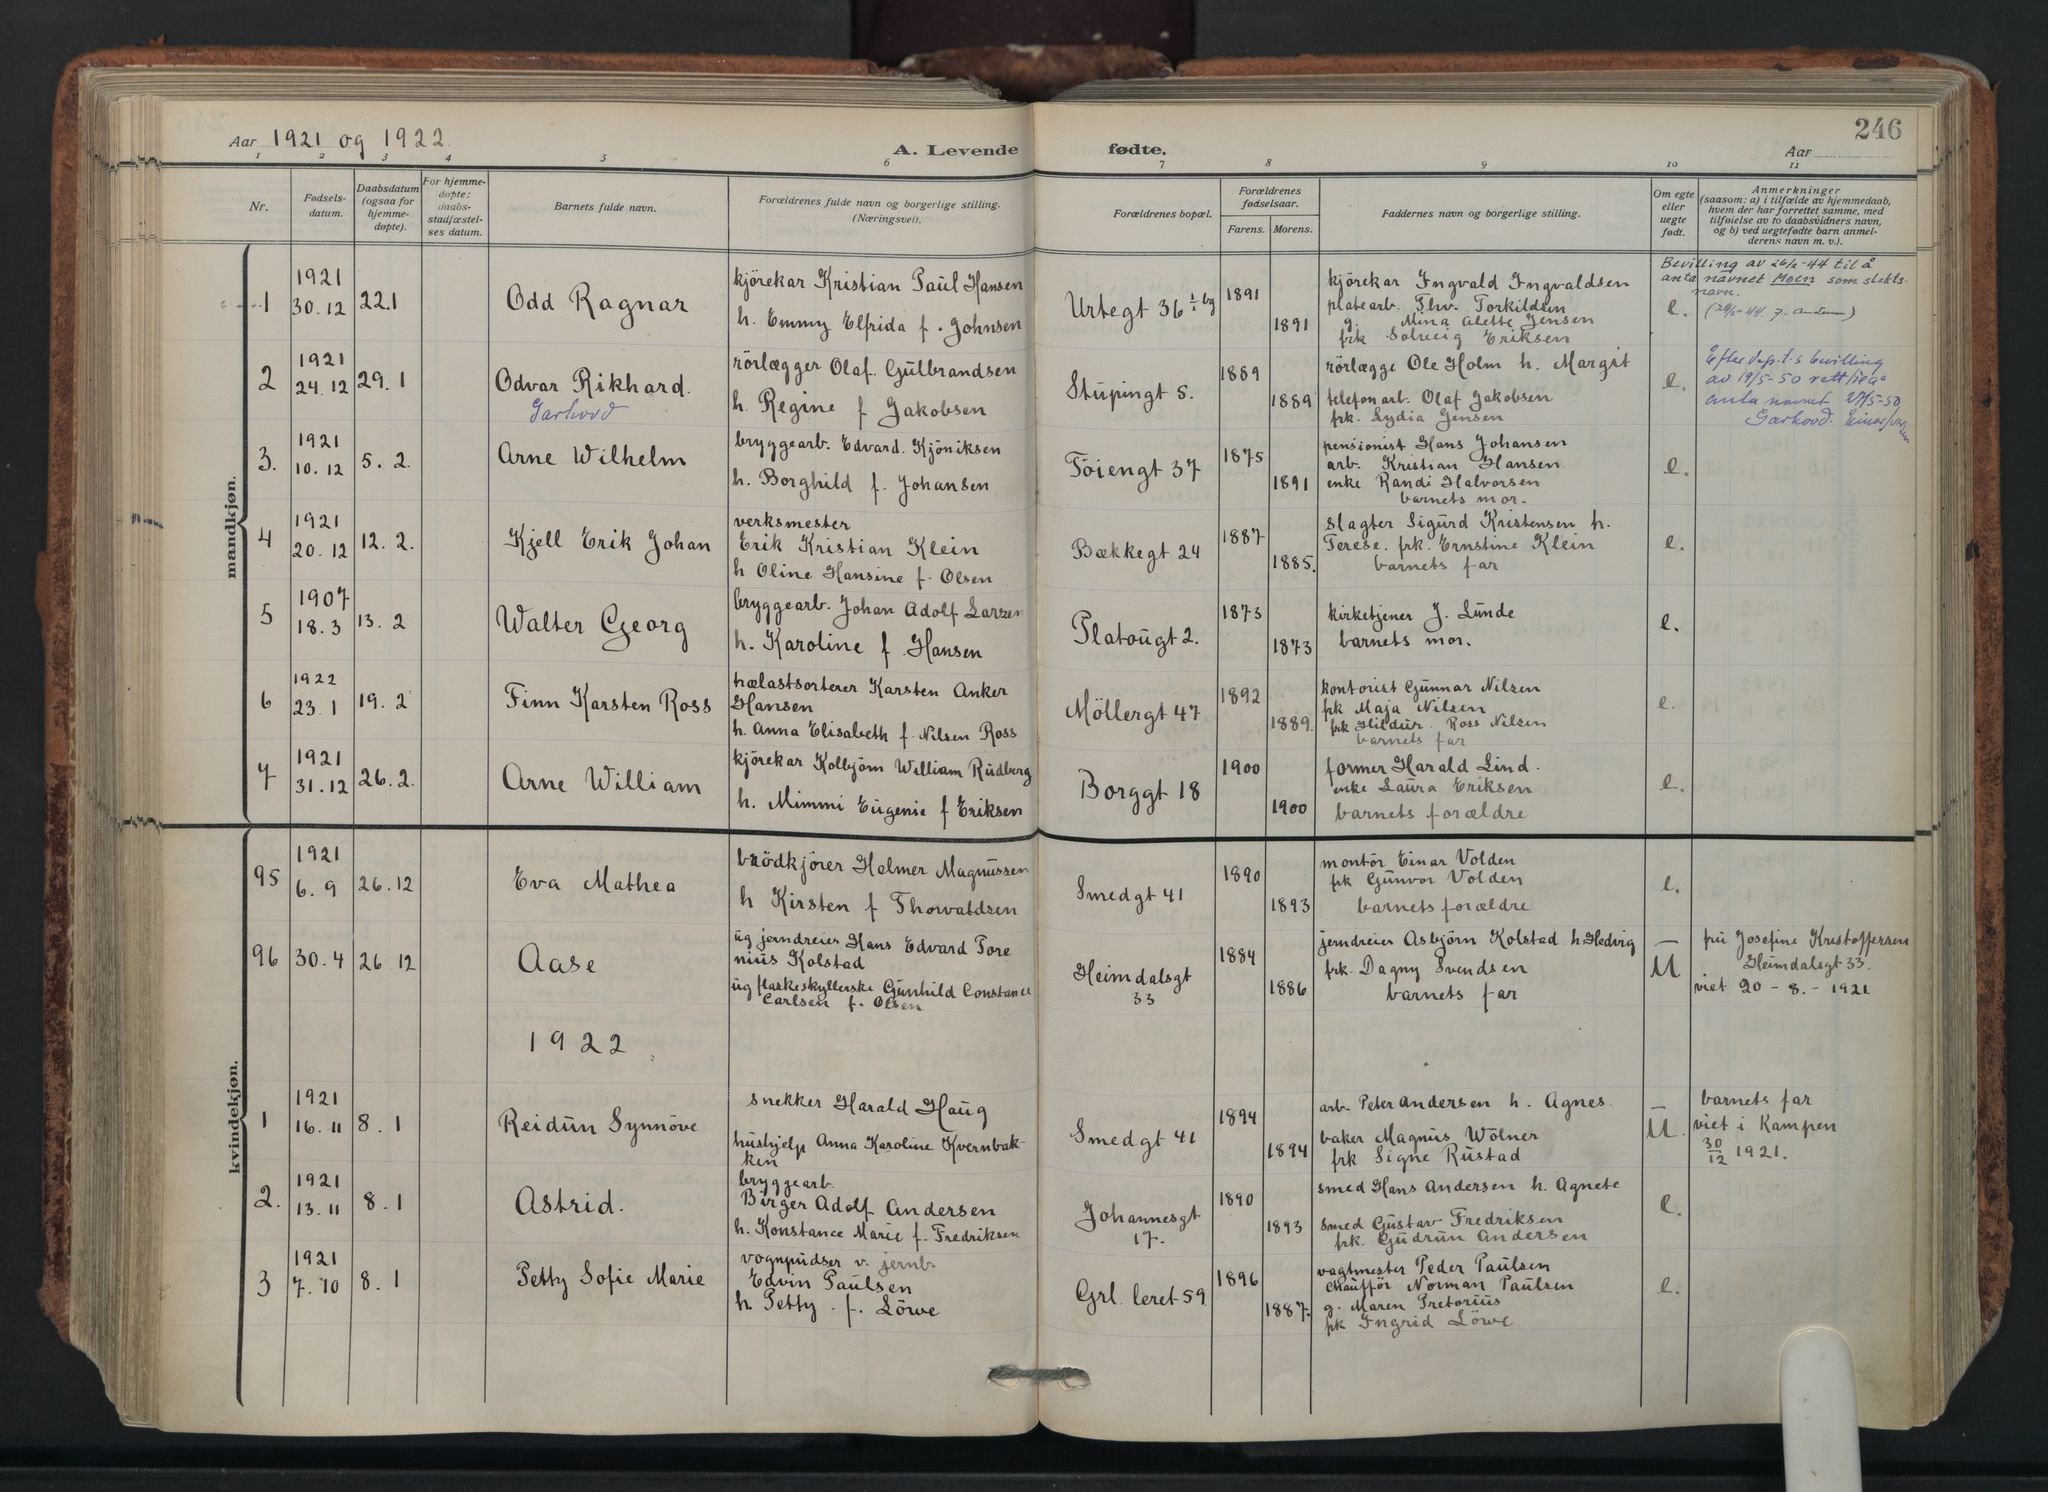 246
Aar 1921 og 1922. A. Levende fødte. Aar
1 2 3 4 5 6 7 8 9 10 11
Nr.
Fødsels-
datum.
Daabsdatum
(ogsaa for
hjemme-
døpte).
For hjemme-
døpte:
daabs-
stadfæstel-
ses datum.
Barnets fulde navn.
Forældrenes fulde navn og borgerlige stilling.
(Næringsvei).
Forældrenes bopæl.
Forældrenes
fødselsaar.
Farens. Morens.
Faddernes navn og borgerlige stilling.
Om egte
eller
uegte
født.
Anmerkninger
(saasom: a) i tilfælde av hjemmedaab,
hvem der har forrettet samme, med
tilføielse av to daabsvidners navn,
og b) ved uegtefødte barn anmel-
derens navn m. v.).
mandkjøn.
1
1921
30.12
22.1
Odd Ragnar
kjörekar Kristian Paul Hansen
h. Emmy Elfrida f. Johnsen
Urtegt 36
1891
1891
kjörekar Ingvald Ingvaldsen
platearb. Thv. Torkildsen
g. Mina Alette Jensen
frk Solveig Eriksen
e.
Bevilling av 26/2-44 til å
anta navnet Moen som slekts-
navn.
2
1921
24.12
29.1
Odvar Rikhard.
Garhovd
rörlægger Olaf Gulbrandsen
h. Regine f Jakobsen
Stupingt 5.
1889
1889
rörlægge Ole Holm h. Margit
telefonarb. Olaf Jakobsen
frk. Lydia Jensen
e.
Efter dep.t.s bevilling
av 19/5-50 rett
anta navnet 27/5-50
Garhovd. Einar
3.
1921
10.12
5.2.
Arne Wilhelm
bryggearb. Edvard Kjöniksen
h. Borghild f. Johansen
Töiengt 37
1875
1891
pensionist Hans Johansen
arb. Kristian Hansen.
enke Randi Halvorsen
barnets mor.
e.
4
1921
20.12
12.2.
Kjell Erik Johan
verksmester
Erik Kristian Klein
h Oline Hansine f. Olsen
Bækkegt 24
1887
1885.
slagter Sigurd Kristensen h.
Terese. frk. Ernstine Klein
barnets far
e.
5
1907
18.3
13.2
Walter Georg
bryggearb. Johan Adolf Larzen
h. Karoline f Hansen
Platougt 2.
1873
1873
kirketjener J. Lunde
barnets mor.
e.
6
1922
23.1
19.2
Finn Karsten Ross
hælastsorterer Karsten Anker
Hansen
h. Anna Elisabeth f. Nilsen Ross
Möllergt 47
1892
1889.
kontorist Gunnar Nilsen
frk Maja Nilsen
frk Hildur Ross Nilsen
barnets far
e.
7
1921
31.12
26.2.
Arne William
kjörekar Kolbjörn William Rudberg
h. Mimmi Eugenie f Eriksen
Borggt 18
1900
1900
former Harald Lind.
enke Laura Eriksen
barnets forældre
e.
kvindekjøn.
95
1921
6.9
26.12
Eva Mathea
brödkjörer Helmer Magnussen
h Kirsten f Thorvaldsen
Smedgt 41
1890
1893
montör Einar Volden
frk Gunvor Volden
barnets forældre
e.
96
30.4
26.12
Aase
ug jerndreier Hans Edvard Tore
nius Kolstad
ug flaskeskyllerske Gunhild Constance
Carlsen f. Olsen
Heimdalsgt
33
1884
1886
jerndreier Asbjörn Kolstad h Hedvig
frk. Dagny Svendsen
barnets far
U
fru Josefine Kristoffersen
Heimdalsgt 33.
viet 20-8.-1921
1922
1
1921
16.11
8.1
Reidun Synnöve
snekker Harald Haug
hushjelp Anna Karoline Kvernbak-
ken
Smedgt 41
1894
1894
arb. Peter Andersen h. Agnes.
baker Magnus Wölner
frk Signe Rustad
U.
barnets far
viet i Kampen
30/12 1921.
2.
1921
13.11
8.1
Astrid.
bryggearb.
Birger Adolf Andersen
h. Konstance Marie f. Fredriksen
Johannesgt
17.
1890
1893
smed Hans Andersen h. Agnete
smed Gustav Fredriksen
frk. Gudrun Andersen
e.
3
1921
7.10
8.1
Petty Sofie Marie
vognpudser v. jernb.
Edvin Paulsen
h. Petty f. Löwe
Grl. leret 59
1896
1887.
vagtmester Peder Paulsen
Chaufför Norman Paulsen
g. Maren Pretorius
frk Ingrid Löwe
e.